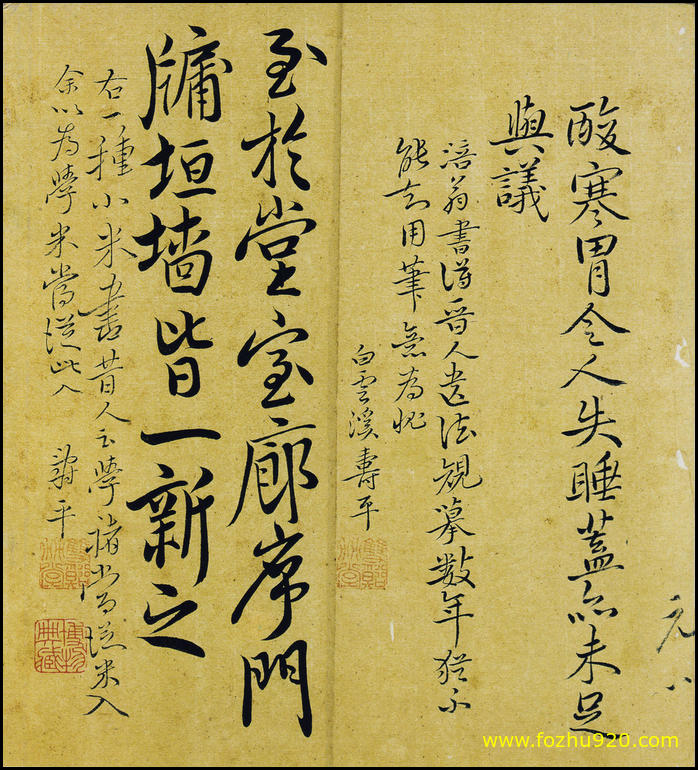 酸寒胃令人失睡蓋亦未足
與議
涪翁書得晉人遺法規摹數年猶不
能知用筆為愧
白雲溪壽平
至於堂室廊序門
牖垣墻皆一新之
右一種小米書昔人云學褚當從米入
余以為學米當從此入
壽平
www.fozhu920.com